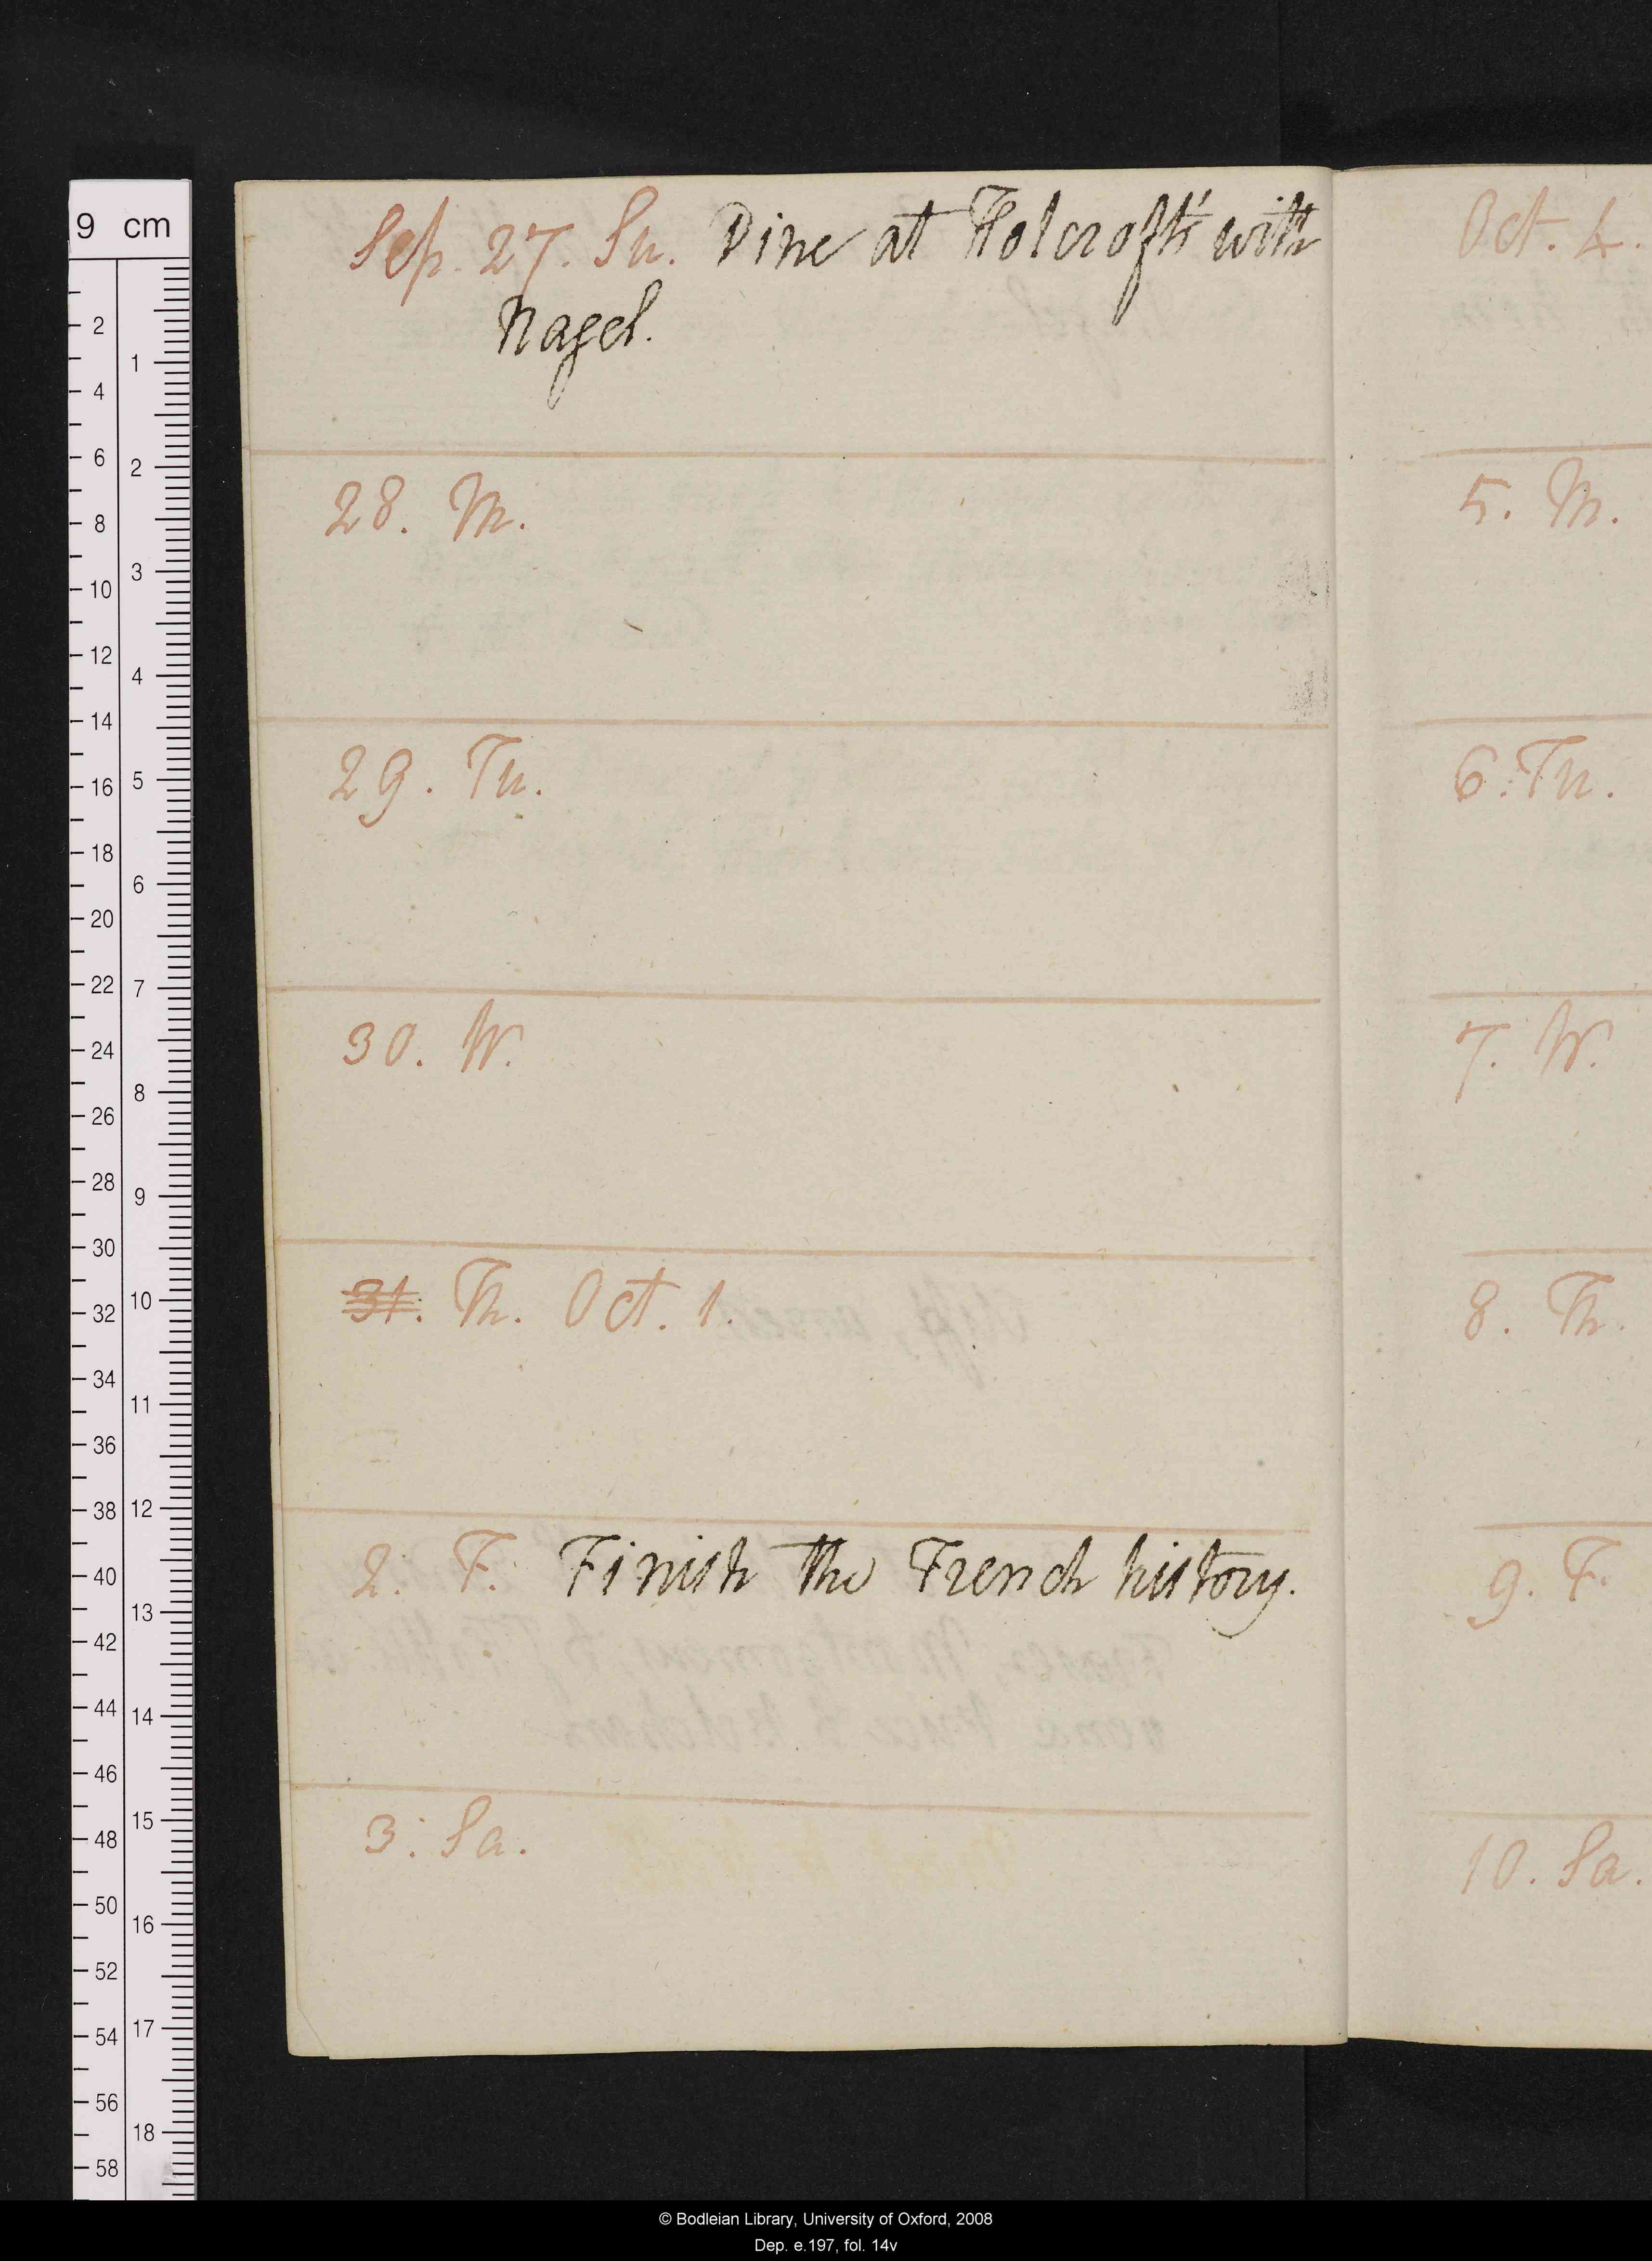 Sep. 27. Su. Dine at Holcroft's with
Nagel.
28. M.
29. Tu.
30. W.
31. Th. Oct. 1.
2. F. Finish the French history.
3. Sa.
Oct. 4.
5. M.
6. Tu.
7. W.
8. Th.
9. F.
10. Sa.
9 cm
2
4
6
8
10
12
14
16
18
20
22
24
26
28
30
32
34
36
38
40
42
44
46
48
50
52
54
56
58
1
2
3
4
5
6
7
8
9
10
11
12
13
14
15
16
17
18
© Bodleian Library, University of Oxford, 2008
Dep. e.197, fol. 14v